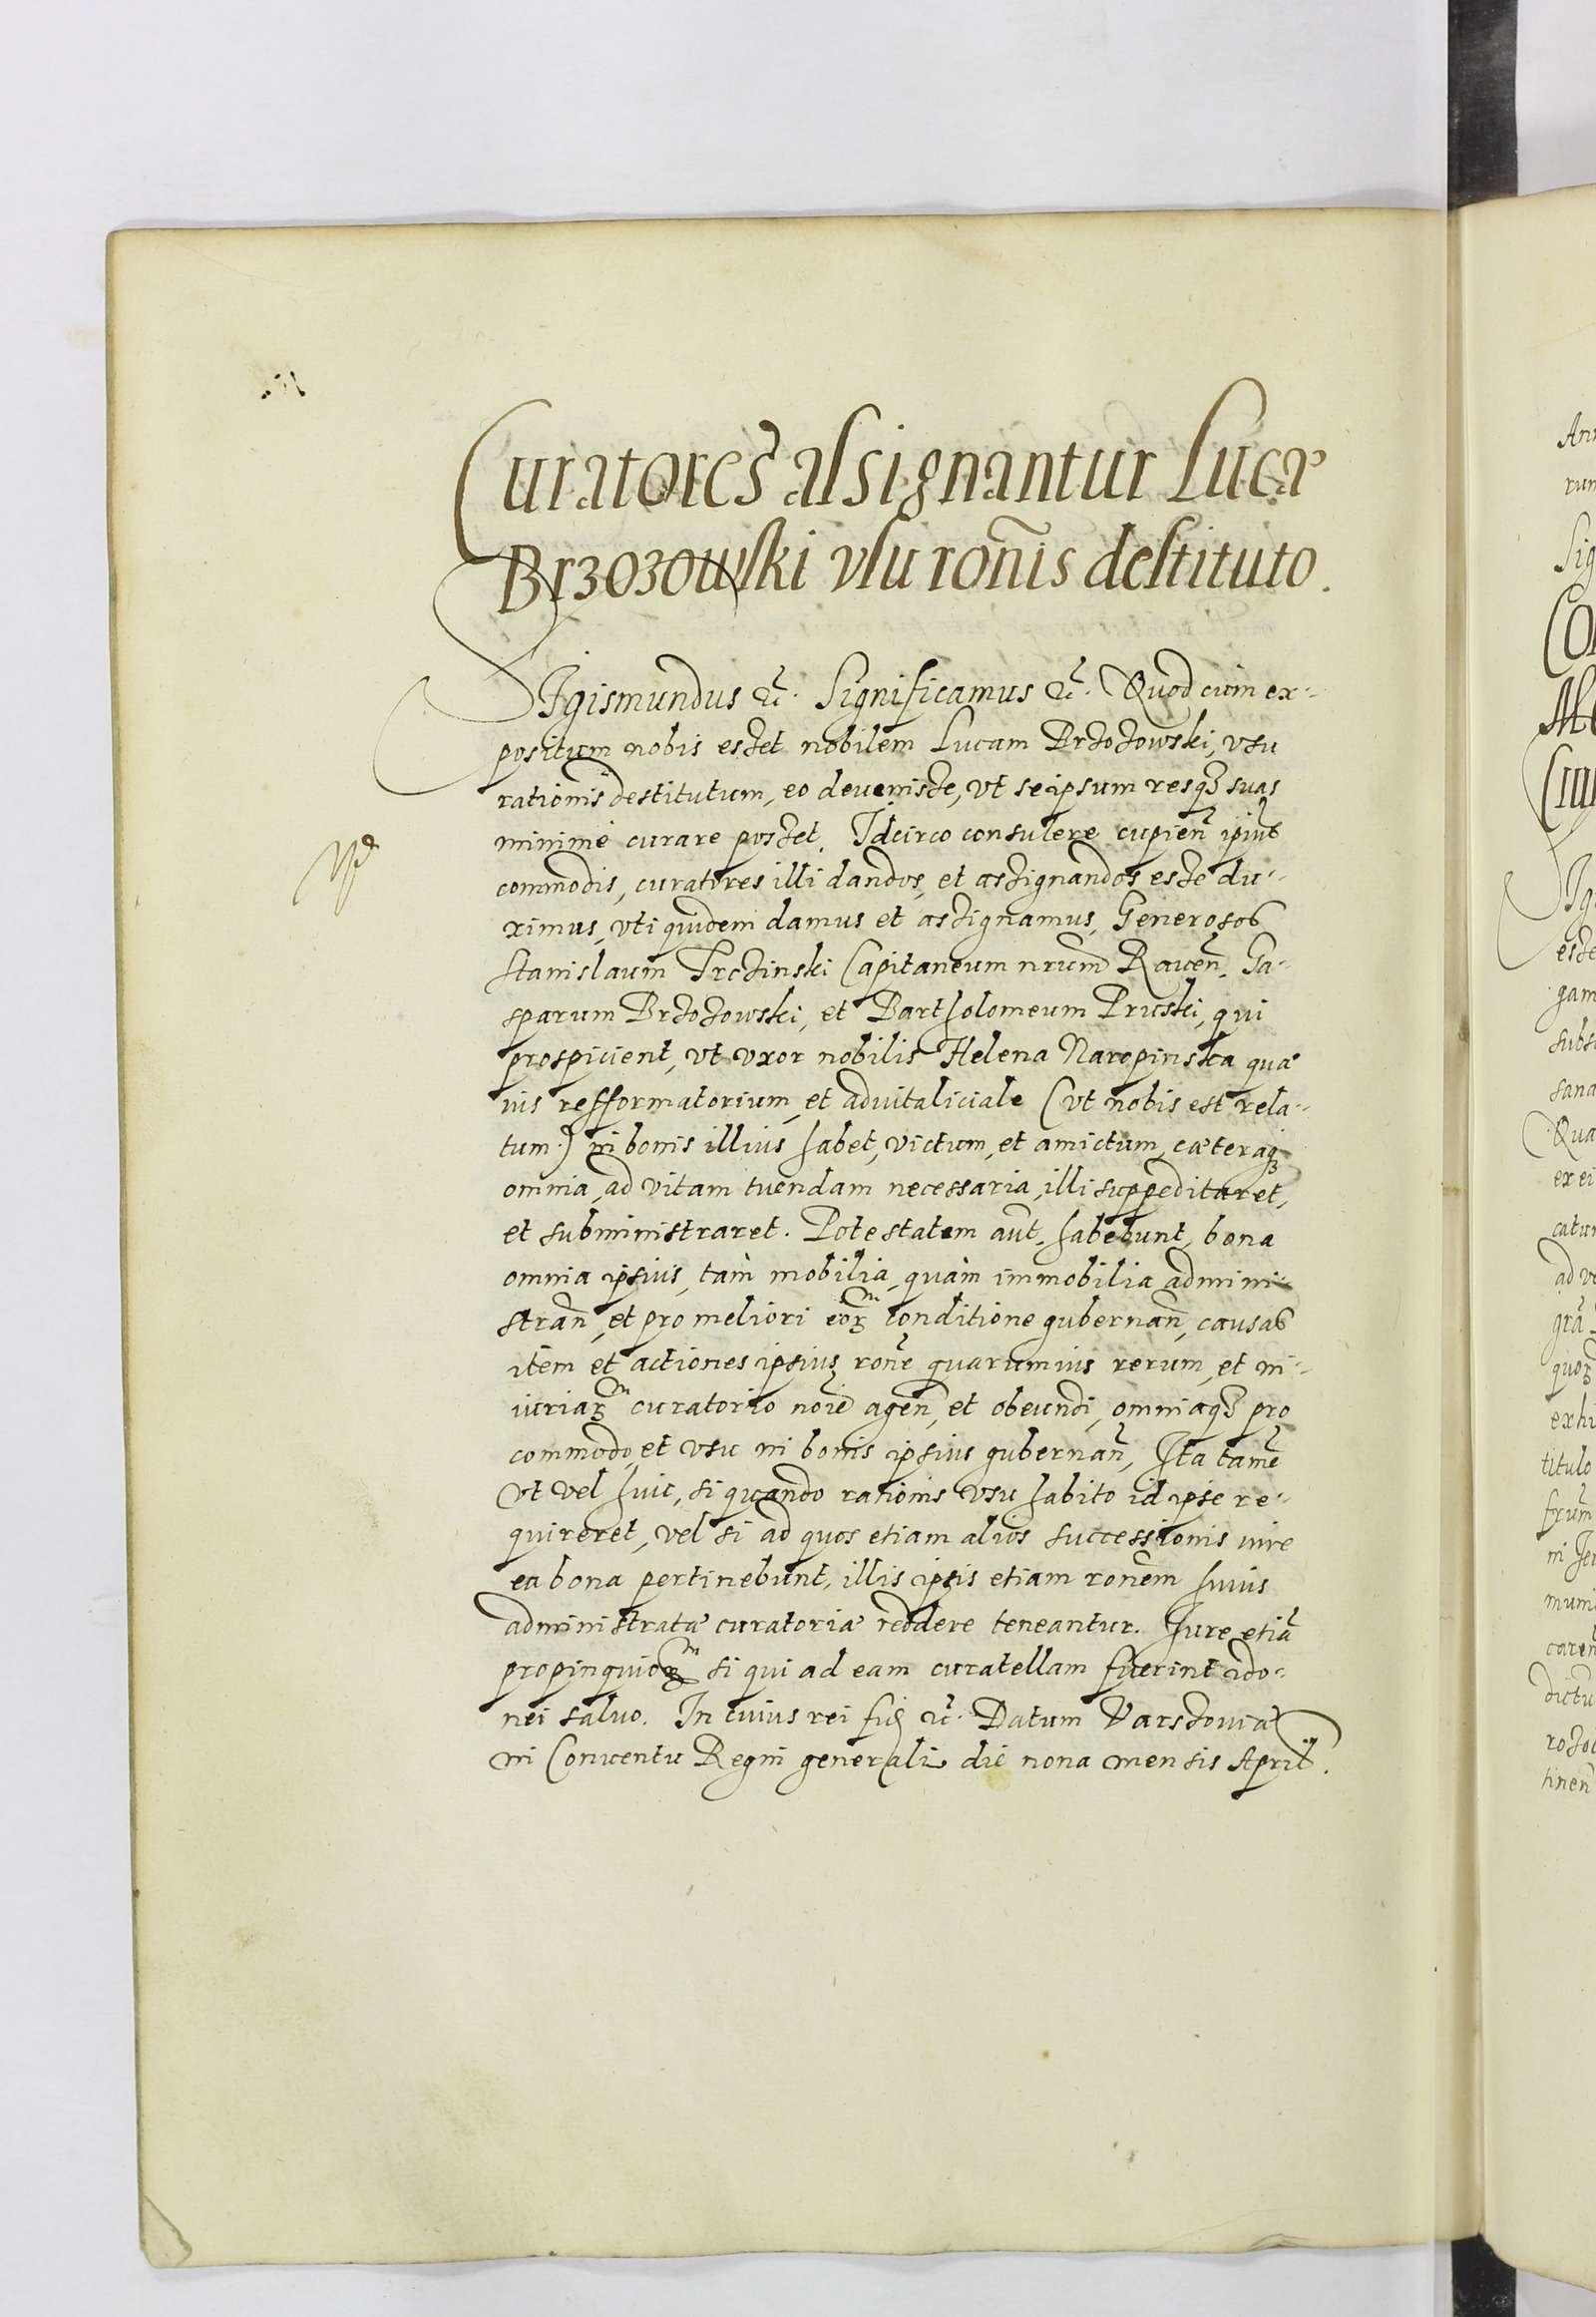 Curatores assignantur Lucæ
Brzozowski vsu rōnis destituto.
Sigismundus &c̃. Significamus &c̃. Quod cum ex-
positum nobis esset nobilem Lucam Brzozowski, vsu
rationis destitutum, eo devenisse, vt seipsum resq3 suas
minimè curare posset. Idcirco consulere cupieñ ipiũs
commodis, curatores illi dandos, et assignandos esse du-
ximus, vti quidem damus et assignamus, Generosos
Stanislaum Trczinski Capitaneum nrum̃ Raveñ. Ga-
sparum Brzozowski, et Bartholomeum Pruski, qui
prospicient, vt vxor nobilis Helena Naropinska quæ
ius refformatorium, et aduitaliciale (vt nobis est rela-
tum) in bonis illius habet, victum, et amictum, cæteraq3
omnia, ad vitam tuendam necessaria, illi suppeditaret,
et subministraret. Potestatem aũt. habebunt, bona
omnia ipsius, tàm mobilia, quàm immobilia admini-
strañ, et pro meliori eorꝝ conditione gubernañ, causas
item et actiones ipsius rõne quarumuis rerum, et in-
iuriarꝝ curatorio noiẽ ageñ, et obeundi, omniaq3 pro
commodo, et vsu in bonis ipsius gubernañ, Ita tamẽ
vt vel huic, si quando rationis vsu habito id ipse re-
quireret, vel si ad quos etiam alios successionis iure
ea bona pertinebunt, illis ipsis etiam ronẽm huius
administratæ curatoriæ reddere teneantur. Iure etiã
propinquiorꝝ si qui ad eam curatellam fuerint ido-
nei saluo. In cuius rei fiḍ &c̃. Datum Varssoviæ
in Conventu Regni generali die nona mensis April̃.